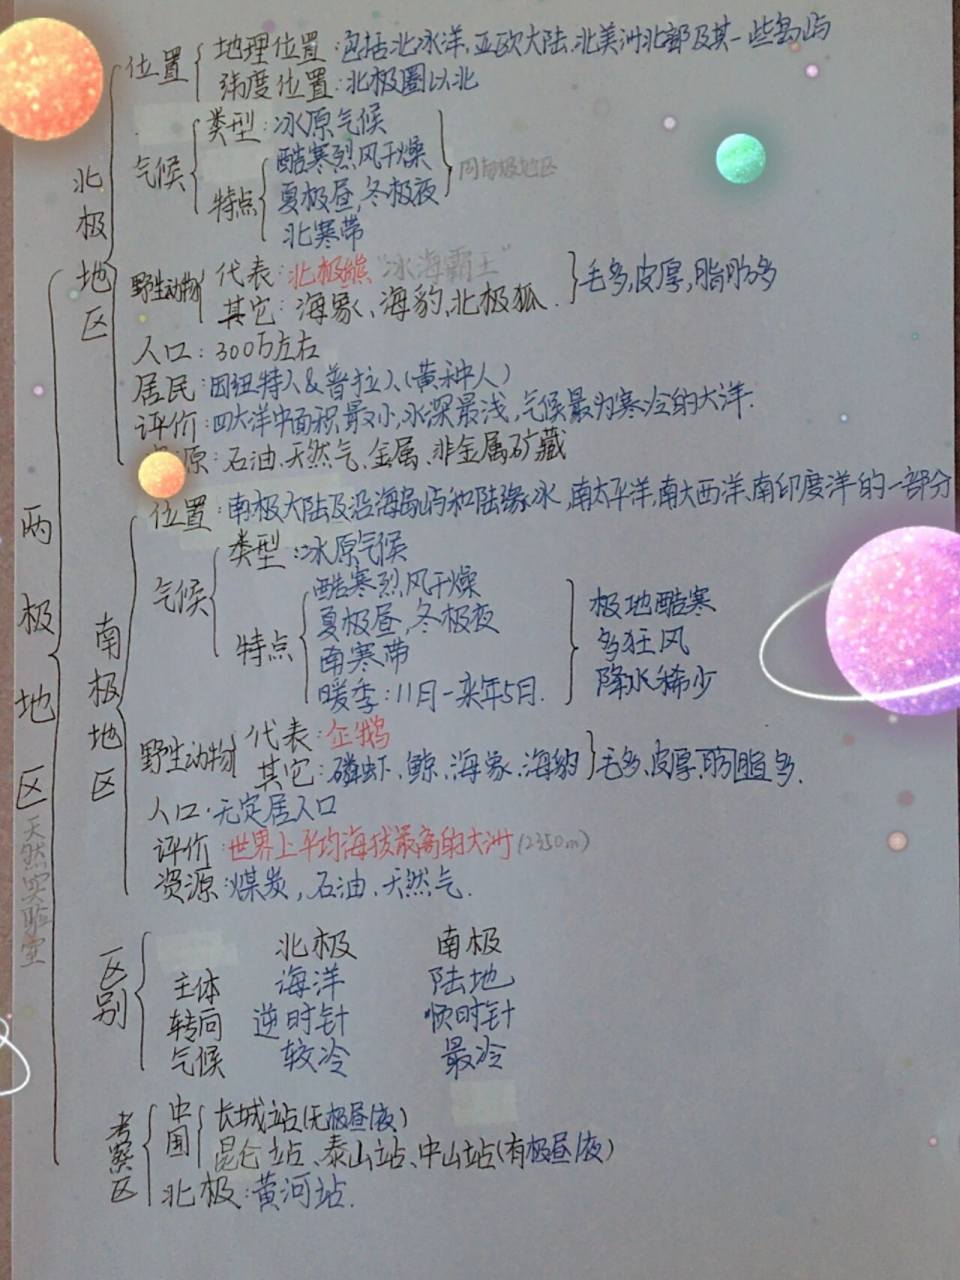 位置 地理位置：包括北冰洋，亚欧大陆、北美洲北部及其一些岛屿
纬度位置：北极圈以北
气候 类型：冰原气候
特点 酷寒烈风干燥
夏极昼，冬极夜
北寒带
同南极地区
北极地区
野生动物 代表：北极熊 "冰海霸王"
其它：海象、海豹、北极狐．
毛多，皮厚，脂肪多
人口：300万左右
居民：因纽特人&普拉人(黄种人)
评价：四大洋中面积最小，水深最浅，气候最为寒冷的大洋．
源：石油、天然气、金属、非金属矿藏
两极地区
天然实验室
南极地区
位置：南极大陆及沿海岛屿和陆缘冰，南太平洋，南大西洋、南印度洋的一部分
气候 类型：冰原气候
特点 酷寒烈风干燥
夏极昼，冬极夜
南寒带
暖季：11月一来年5日．
极地酷寒
多狂风
降水稀少
野生动物 代表：企鹅
其它：磷虾、鲸、海象、海豹
毛多、皮厚，脂多．
人口．无定居人口
评价：世界上平均海拔最高的大洲(2350m)
资源：煤炭，石油、天然气．
区别 北极 南极
主体 海洋 陆地
转向 逆时针 顺时针
气候 较冷 最冷
考察区 中国 长城站(无极昼/夜)
昆仑站、泰山站、中山站(有极昼/夜)
北极：黄河站．